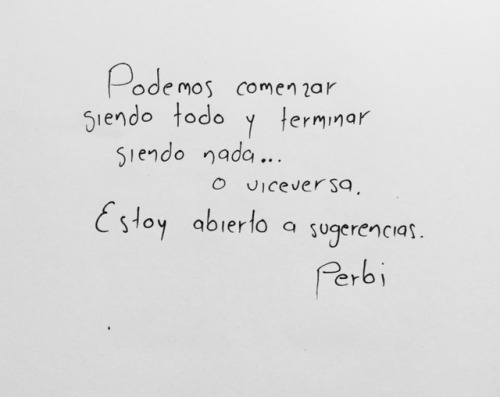 Podemos comenzar
siendo todo y terminar
siendo nada...
o viceversa.
Estoy abierto a sugerencias.
Perbi